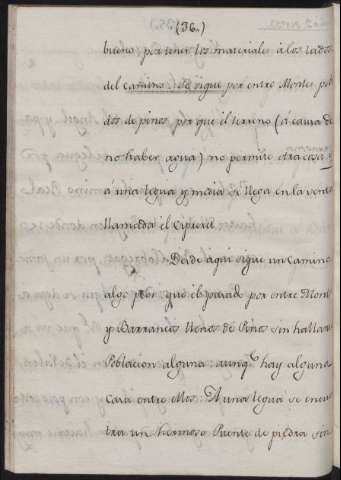 (36.)
bueno, por tener los materiales á los lados
del camino. Se sigue por entre Montes pobla
dos de pinos, por que el terreno (á causa de
no haber agua) no permite otra cosa y
a una legua y media se llega en la venta
llamada el Ciprerét
Desde aqui sigue un camino
algo peor que el pasado por entre Montes
y Barrancos llenos de Pinos sin hallar
Poblacion alguna: aunq.e hay alguna
Casa entre ellos. A una legua se encuen
tra un hermoso Puente de piedra sin